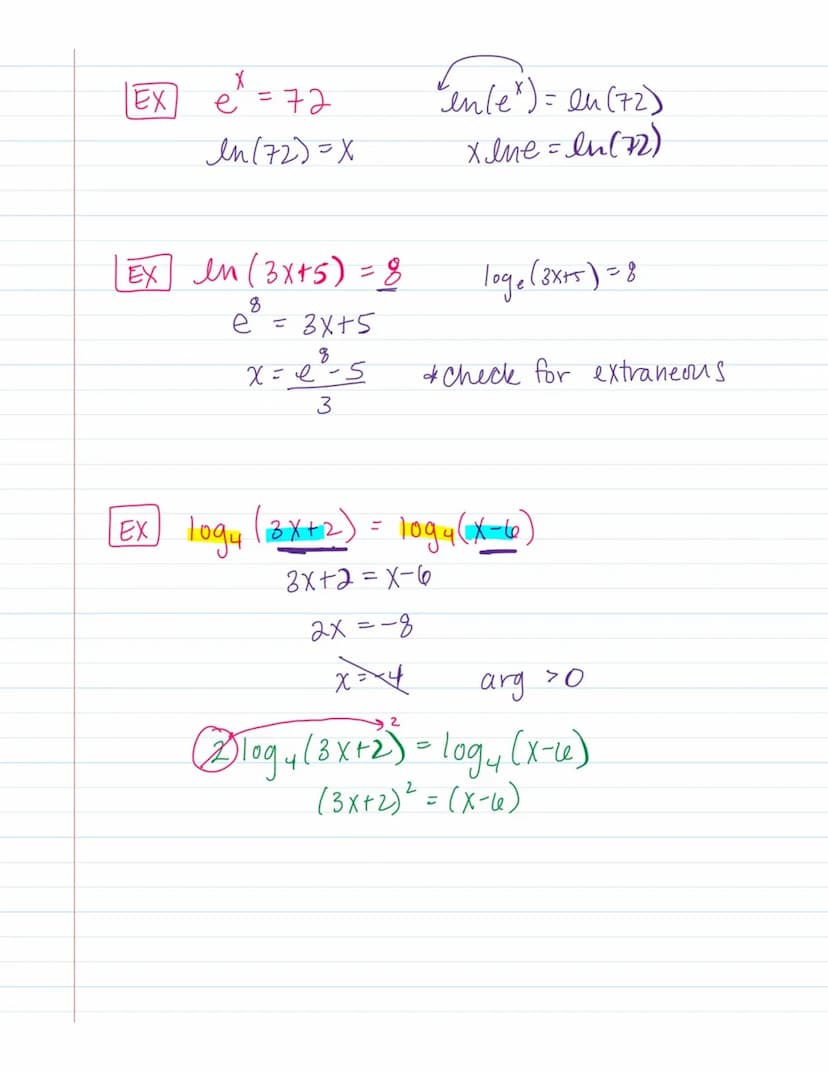 EX e^x = 72 ln(e^x) = ln(72)
ln(72) = x x lne = ln(72)
EX ln(3x+5) = 8 log_e(3x+5) = 8
e^8 = 3x+5
x = (e^8 - 5)/3 *check for extraneous
EX log_4(3x+2) = log_4(x-6)
3x+2 = x-6
2x = -8
x = -4 arg >0
2log_4(3x+2)^2 = log_4(x-6)
(3x+2)^2 = (x-6)